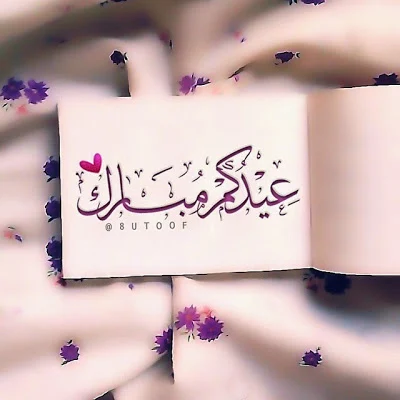 عيدكم مبارك
@8UTOOF